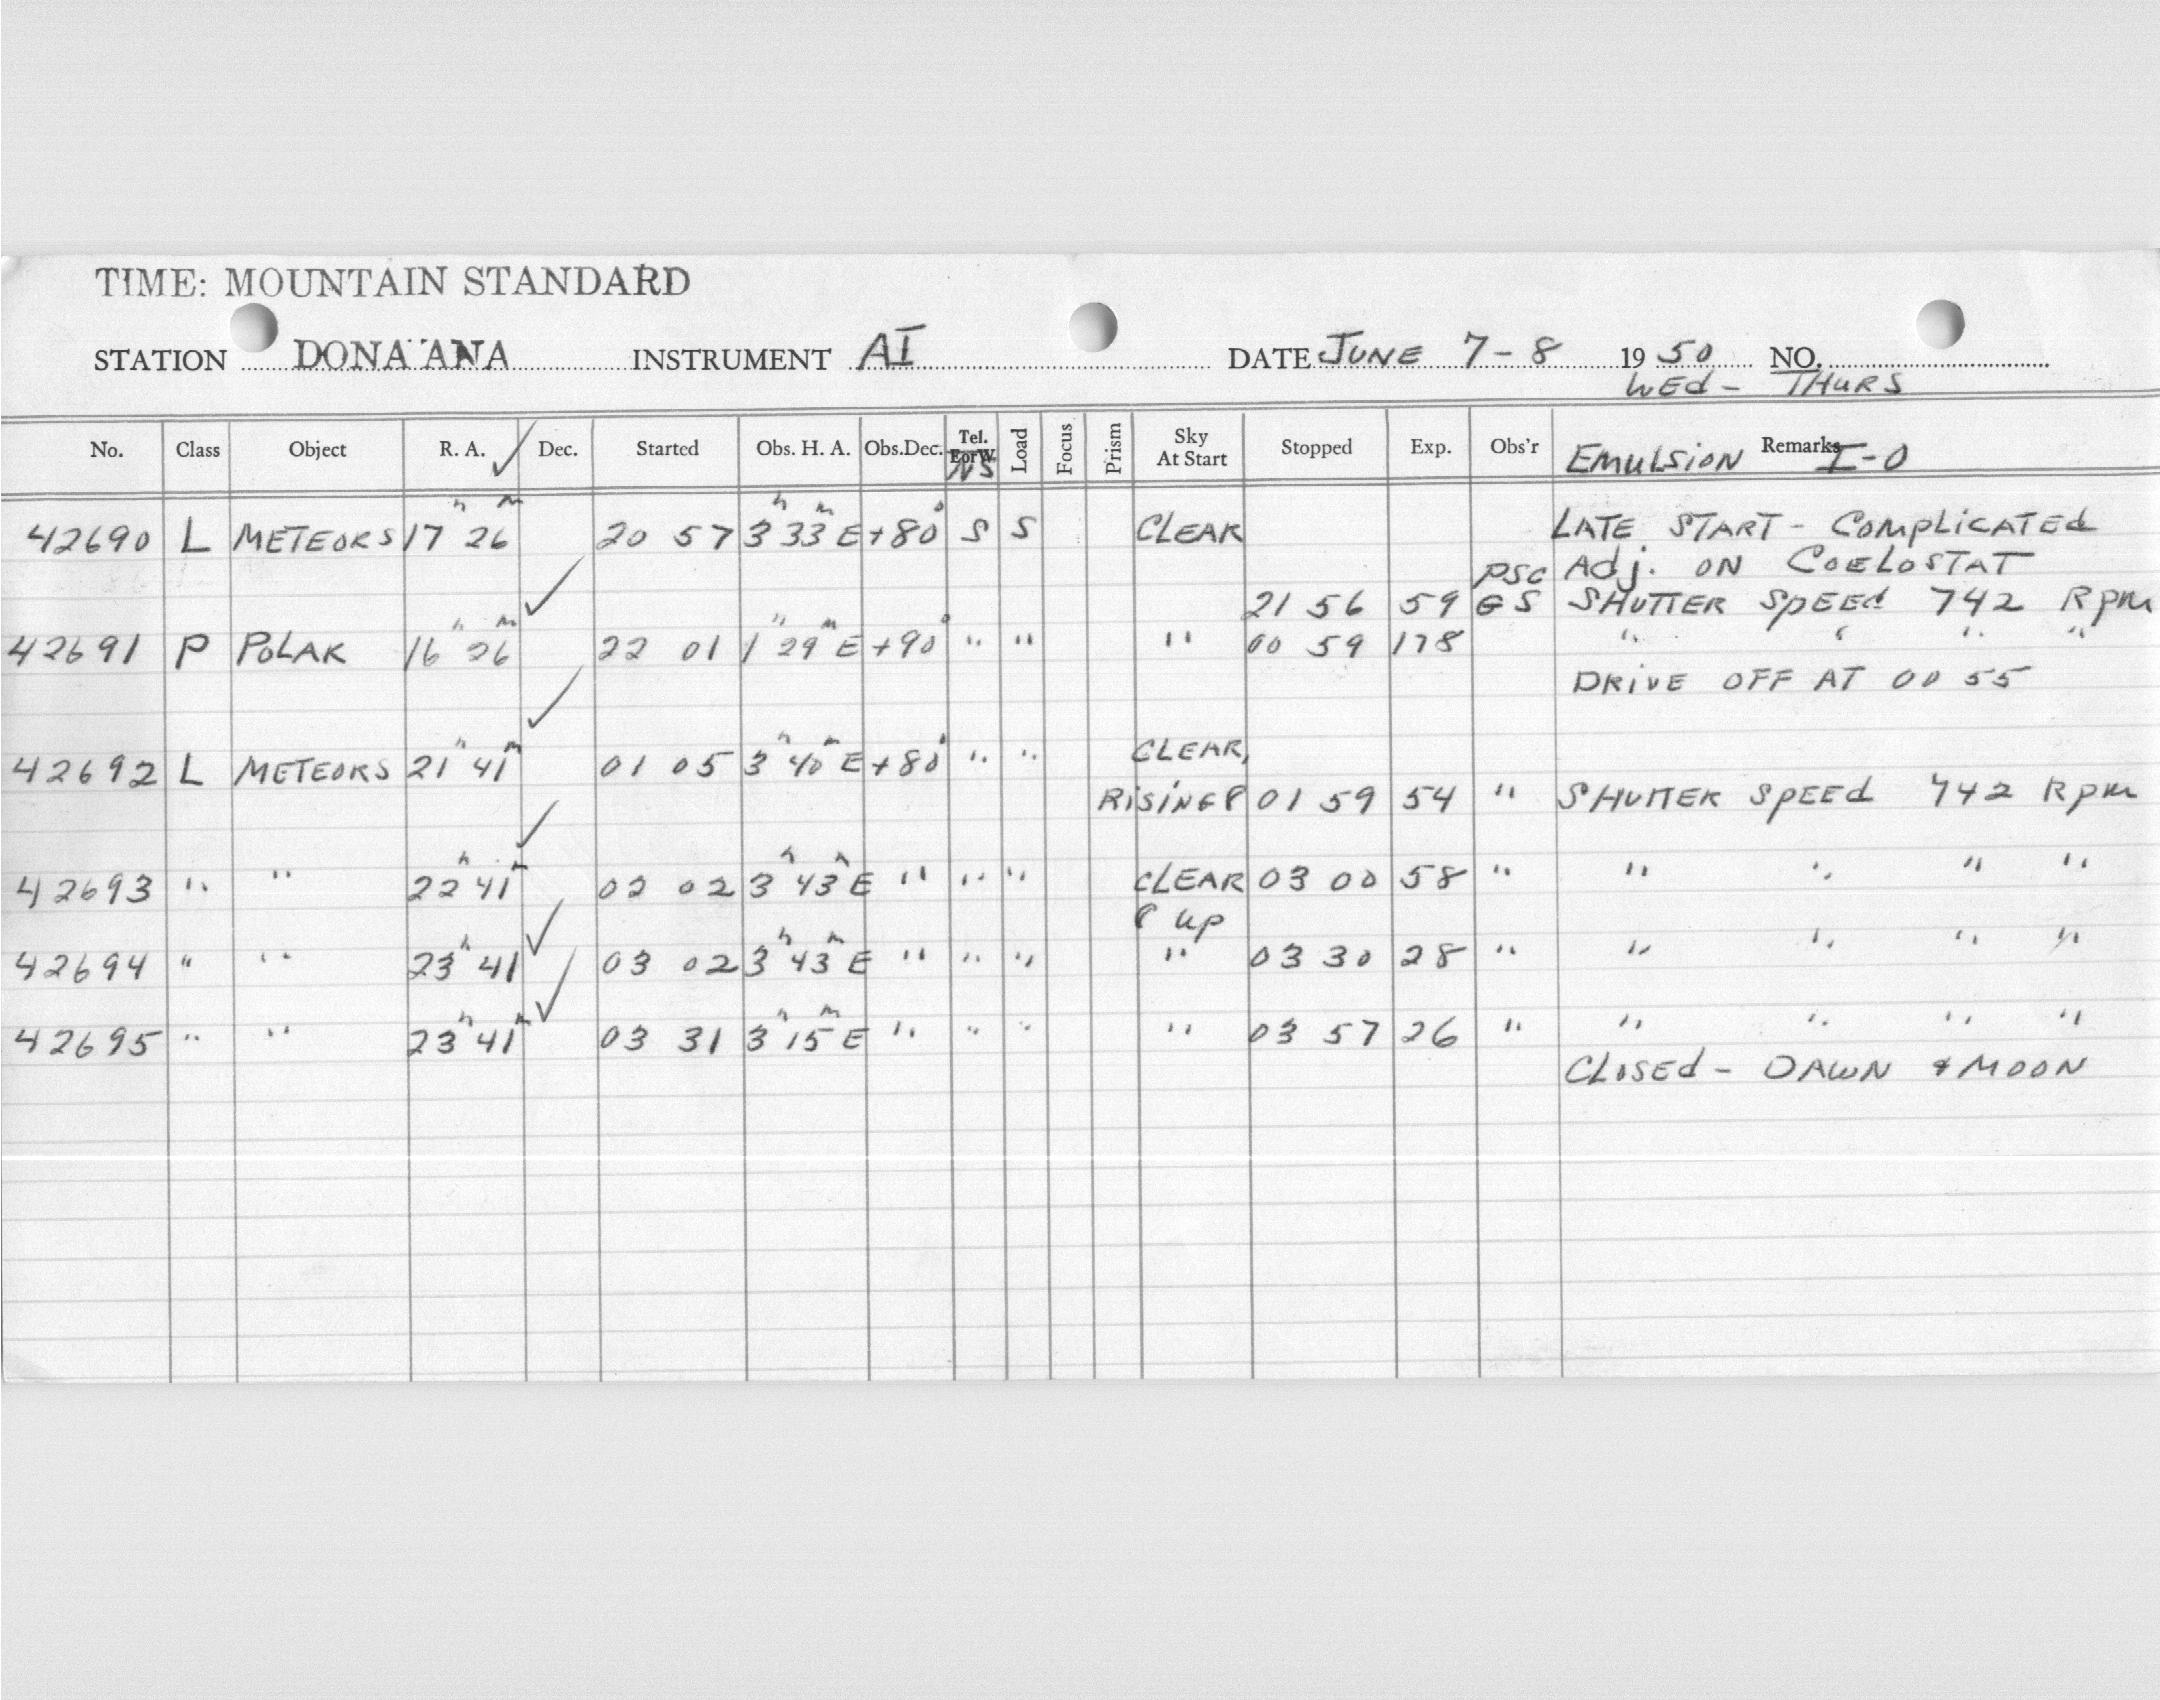 TIME: MOUNTAIN STANDARD
STATION DONA ANA INSTRUMENT AI DATE JUNE 7-8 1950 NO.
WED - THURS
No. Class Object R. A. ✓ Dec. Started Obs. H. A. Obs. Dec. Tel. E or W. NS Load Focus Prism Sky At Start Stopped Exp. Obs'r Remarks EMULSION I-O
42690 L METEORS 17h 26m 20 57 3h 33m E +80° S S CLEAR LATE START - COMPLICATED
PSC Adj. ON COELOSTAT
✓ 21 56 59 GS SHUTTER SPEED 742 RPM
42691 P POLAR 16h 26m 22 01 1h 29m E +90° " " " 00 59 178 " " " "
✓ DRIVE OFF AT 00 55
42692 L METEORS 21h 41m 01 05 3h 40m E +80° " " CLEAR,
RISING 01 59 54 " SHUTTER SPEED 742 RPM
✓
42693 " " 22h 41m 02 02 3h 43m E " " " CLEAR 03 00 58 " " " " "
✓ UP
42694 " " 23h 41 03 02 3h 43m E " " " " 03 30 28 " " " " "
✓
42695 " " 23h 41m 03 31 3h 15m E " " " " 03 57 26 " " " " "
CLOSED - DAWN & MOON